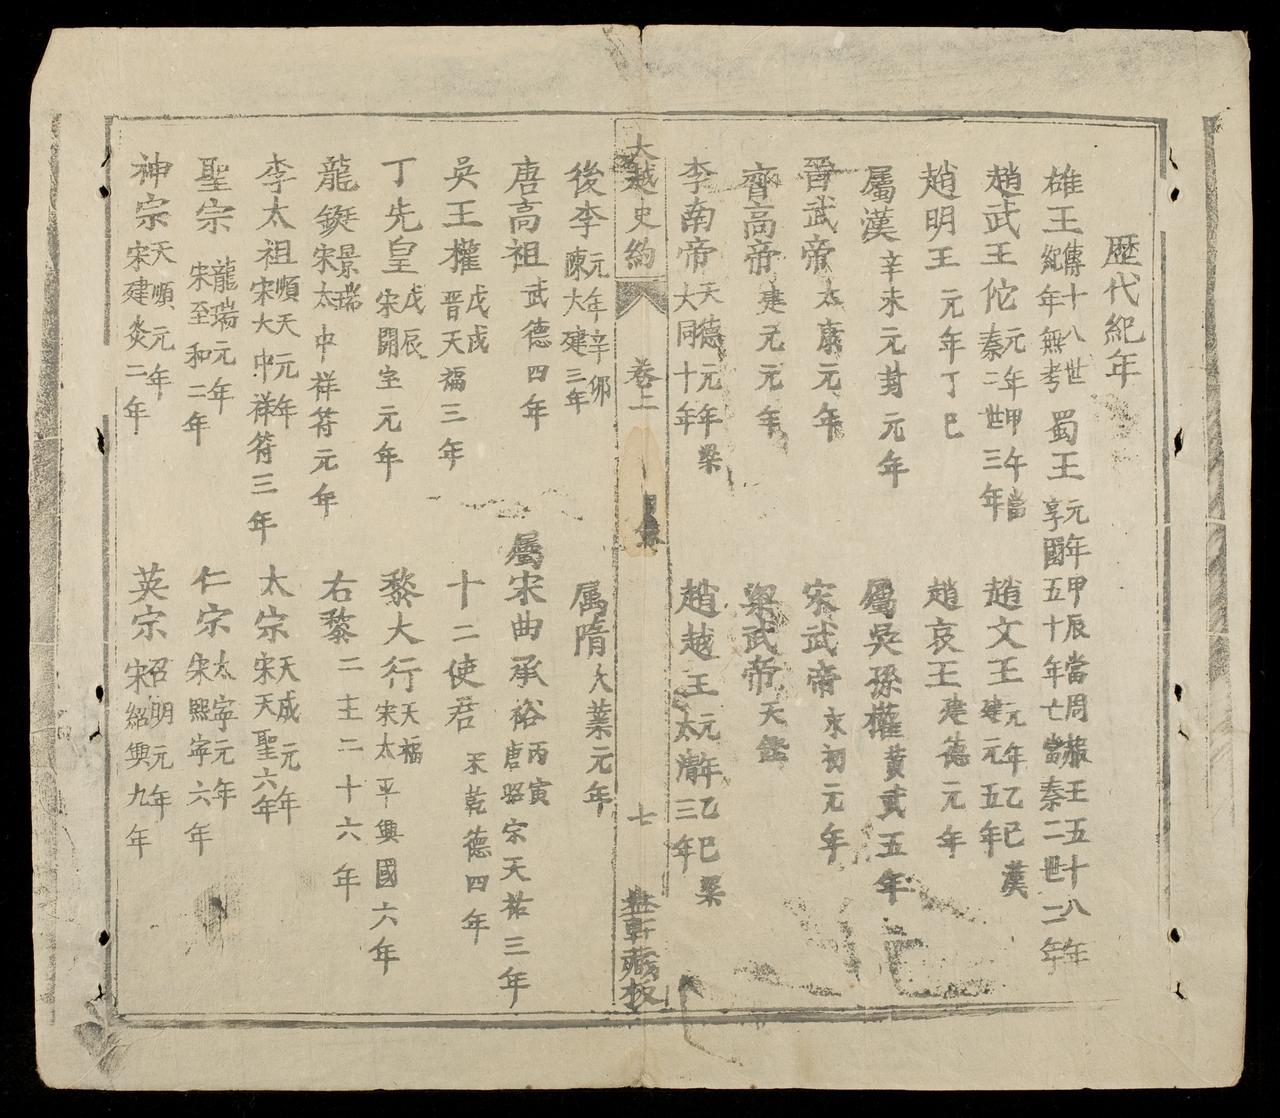 歷代紀年
雄王傳十八世紀年無考 蜀王元年甲辰當周赧王五十八年享國五十年亡當秦二世二年
趙武王佗元年甲午當秦二世三年 趙文王元年乙巳漢建元五年
趙明王元年丁巳 趙哀王建德元年
屬漢辛未元封元年 屬吳孫權黃武五年
晉武帝太康元年 宋武帝永初元年
齊高帝建元元年 梁武帝天鑑
李南帝天德元年梁大同十年 趙越王元年乙巳梁太清三年
大越史約 卷二 七 盎軒藏板
後李元年辛卯陳大建三年 属隋大業元年
唐高祖武德四年 屬宋曲承裕丙寅唐昭宗天祐三年
吳王權戊戌晉天福三年 十二使君宋乾德四年
丁先皇戊辰宋開宝元年 黎大行天福宋太平興國六年
龍鋌景瑞宋太中祥符元年 右黎二主二十六年
李太祖順天元年宋大中祥符三年 太宗天成元年宋天聖六年
聖宗龍瑞元年宋至和二年 仁宗太寧元年宋熙寧六年
神宗天順元年宋建炎二年 英宗召明元年宋紹興九年